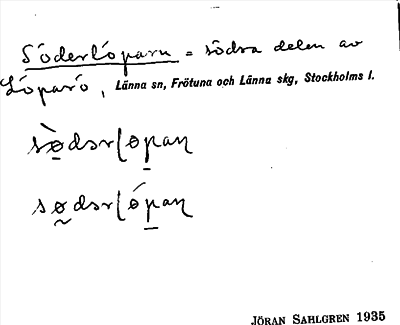 Söderlöparn = södra delen av
Löparö, Länna sn, Frötuna och Länna skg, Stockholms l.
JÖRAN SAHLGREN 1935